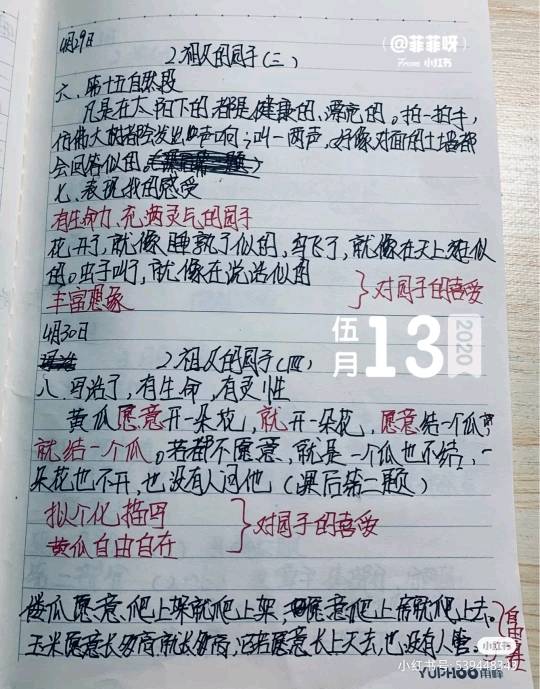 4月29日
2.祖父的园子(三)
六、第十五自然段
凡是在太阳下的都是健康的、漂亮的。拍一拍手,
仿佛大树都会发出声响;叫一两声,好像对面的土墙都
会回答似的。
七、表现我的感受
有生命力、充满灵气的园子
花开了,就像睡熟了似的,鸟飞了,就像在天上逛似
的。虫子叫了,就像在说话似的
丰富想象
对园子的喜爱
4月30日
2.祖父的园子(四)
八、写活了,有生命,有灵性
黄瓜愿意开一朵花,就开一朵花,愿意结一个瓜
就结一个瓜。若都不愿意,就是一个瓜也不结,一
朵花也不开,也没有人问他(课后第二题)
拟人化描写
黄瓜自由自在
对园子的喜爱
倭瓜愿意爬上架就爬上架,愿意爬上房就爬上去。
玉米愿意长多高就长多高,若愿意长上天去,也没有人管。
自由自在
@菲菲呀
From 小红书
伍月13
2020
小红书
小红书号:539448345
YUPHOO